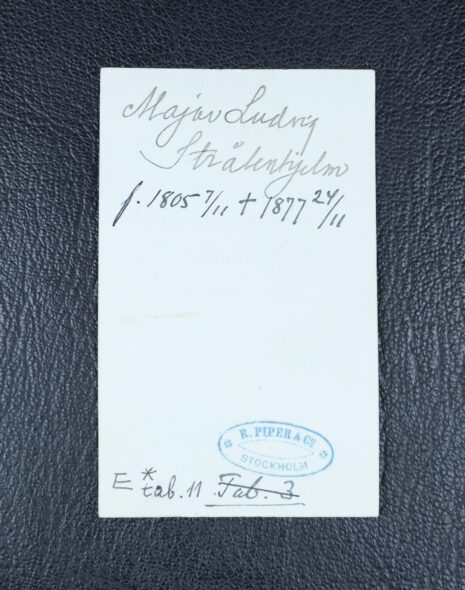 Major Ludvig
Stråhlenhjelm
f. 1805 7/11 + 1877 24/11
R. PIPER & Co
STOCKHOLM
E * tab. 11 Tab. 3